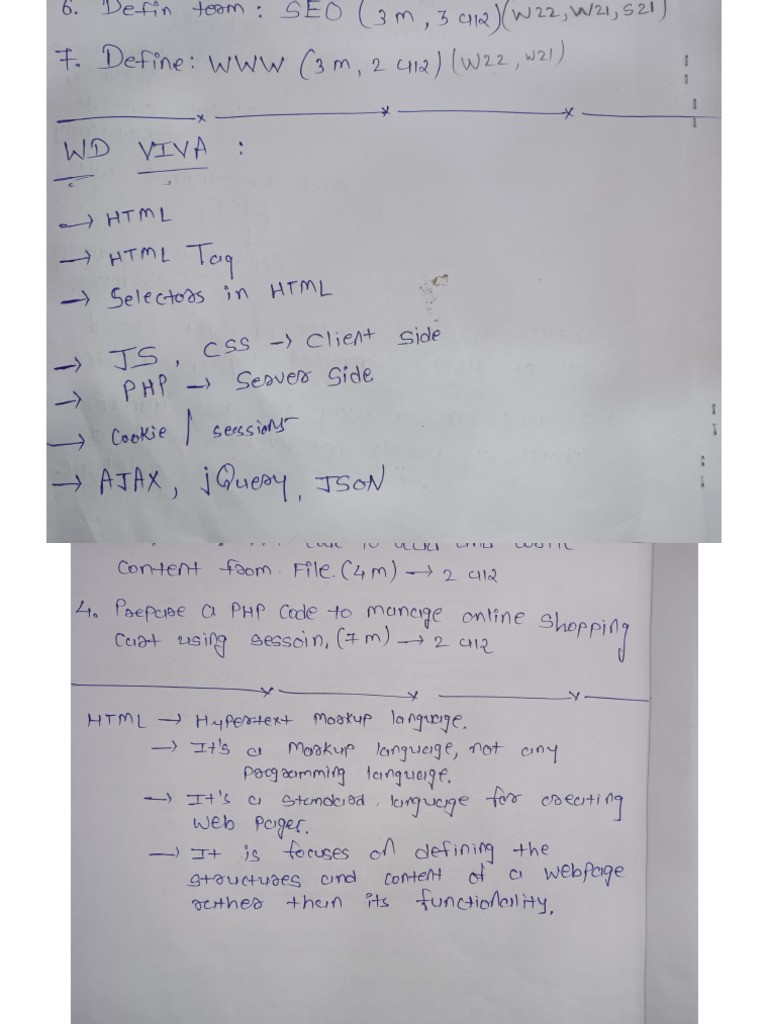 6. Defin team: SEO (3 m, 3 વાર) (W22, W21, S21)
7. Define: WWW (3 m, 2 વાર) (W22, W21)
WD VIVA :
→ HTML
→ HTML Tag
→ Selectors in HTML
→ JS, CSS → Client side
→ PHP → Server Side
→ Cookie / sessions
→ AJAX, jQuery, JSON
content from File. (4 m) → 2 વાર
4. Prepare a PHP code to manage online shopping
cart using sessoin, (7 m) → 2 વાર
HTML → Hypertext Markup language.
→ It's a Markup language, not any
programming language.
→ It's a standard language for creating
Web Pages.
→ It is focuses on defining the
structures and content of a webpage
rather than its functionality.